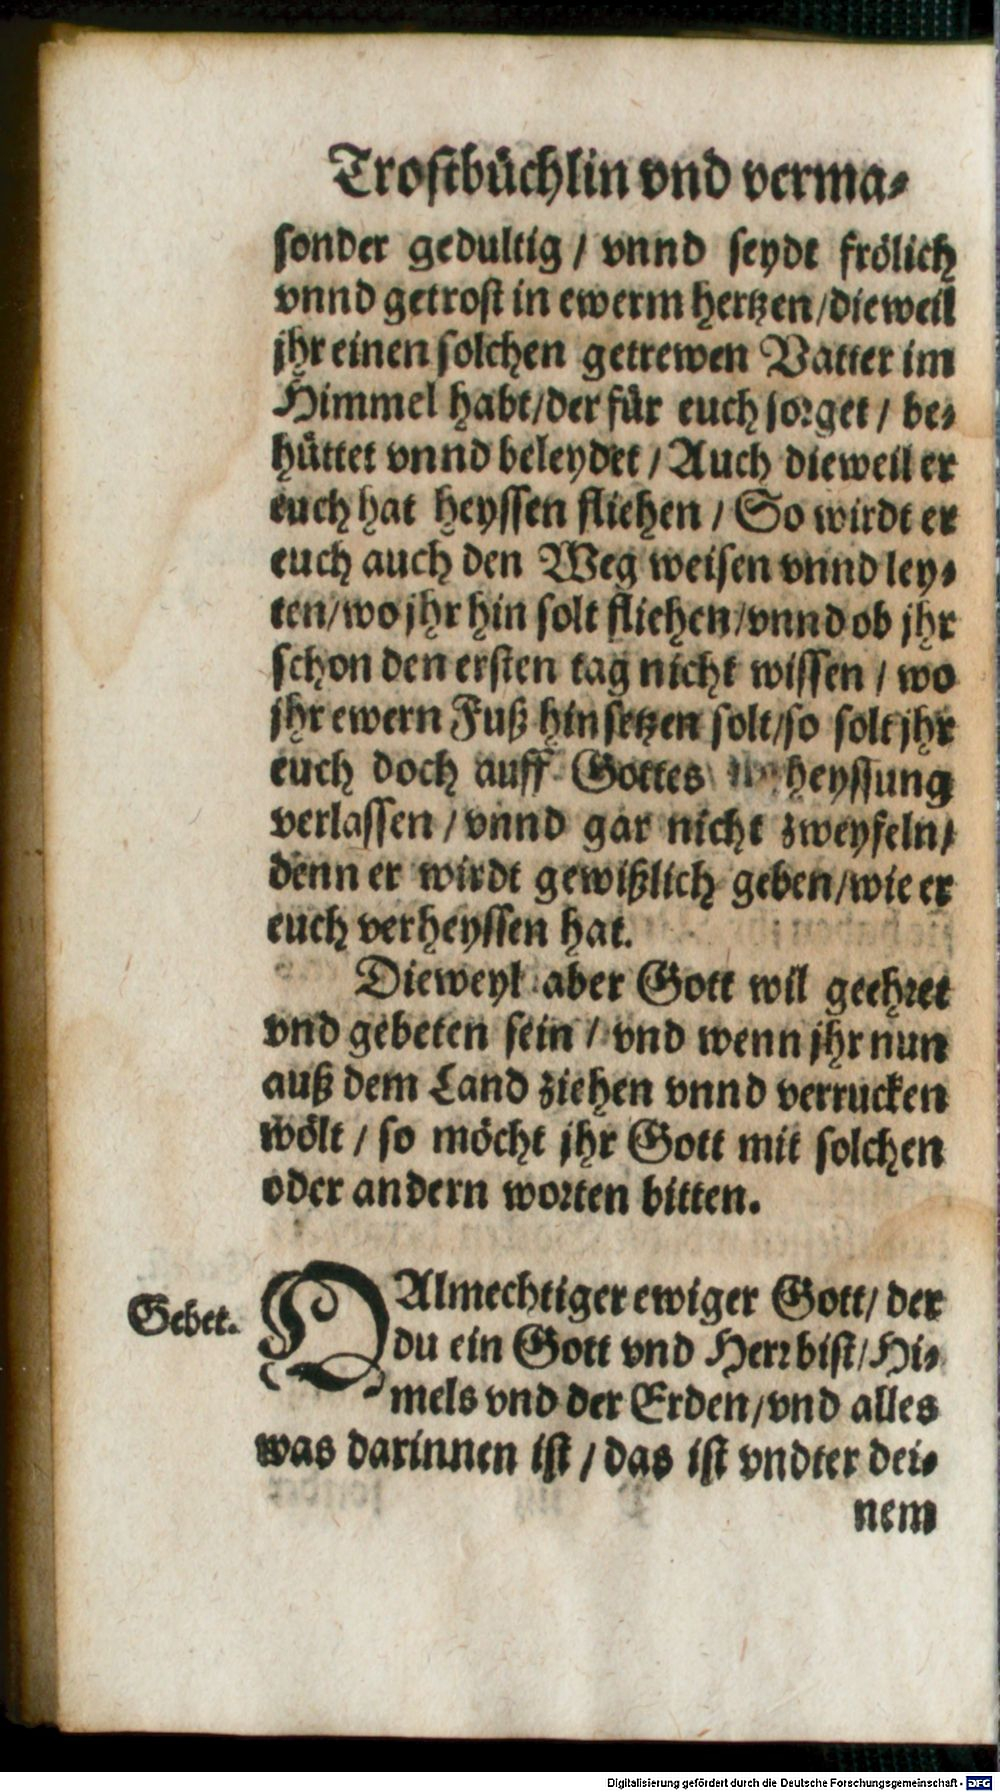 Trostbüchlin vnd verma⸗
sonder gedultig / vnnd seydt frölich
vnnd getrost in ewerm hertzen / dieweil
jhr einen solchen getrewen Vatter im
Himmel habt / der für euch sorget / be⸗
hüttet vnnd beleydet / Auch dieweil er
euch hat heyssen fliehen / So wirdt er
euch auch den Weg weisen vnnd ley⸗
ten / wo jhr hin solt fliehen / vnnd ob jhr
schon den ersten tag nicht wissen / wo
jhr ewern Fuß hin setzen solt / so solt jhr
euch doch auff Gottes heyssung
verlassen / vnnd gar nicht zweyfeln /
denn er wirdt gewißlich geben / wie er
euch verheyssen hat.
Dieweyl aber Gott wil geehret
vnd gebeten sein / vnd wenn jhr nun
auß dem Land ziehen vnnd verrucken
wölt / so möcht jhr Gott mit solchen
oder andern worten bitten.
Gebet.
O Almechtiger ewiger Gott / der
du ein Gott vnd Herr bist / Hi⸗
mels vnd der Erden / vnd alles
was darinnen ist / das ist vndter dei⸗
nem
Digitalisierung gefördert durch die Deutsche Forschungsgemeinschaft - DFG